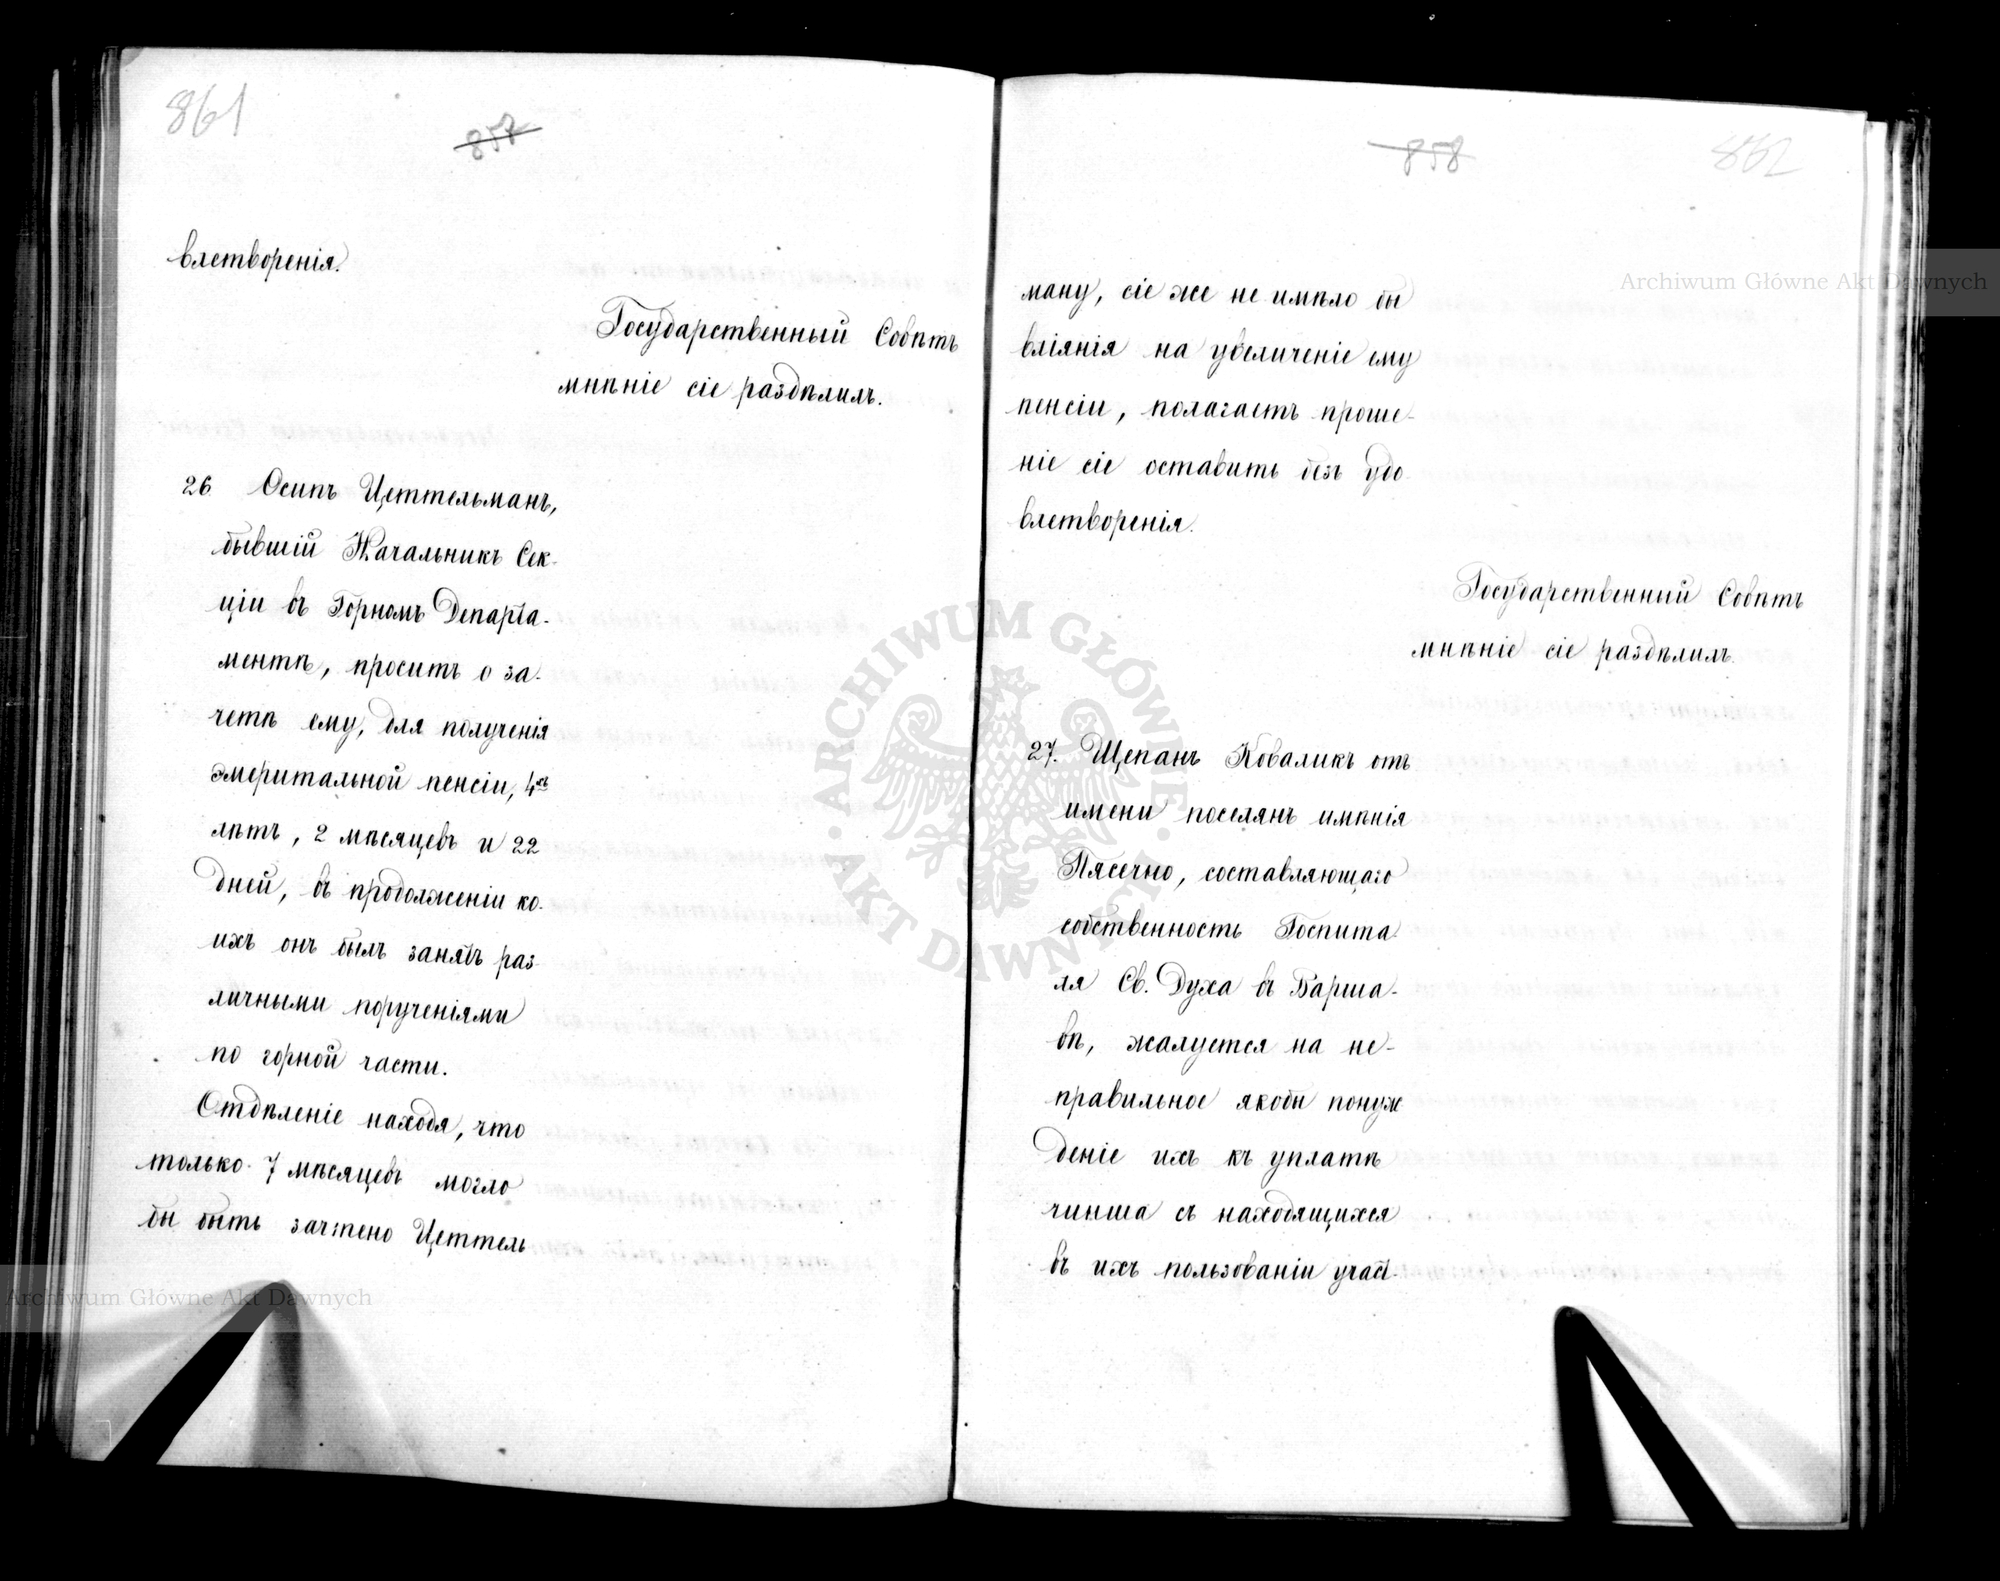 861
857
влетворенія.
Государственный Совѣтъ
мнѣніе сіе раздѣлилъ.
26 Осипъ Цеттельманъ,
бывшій Начальникъ Сек-
ціи въ Горномъ Департа-
ментѣ, проситъ о за-
четѣ ему, для полученія
эмеритальной пенсіи, 4хъ
лѣтъ, 2 мѣсяцевъ и 22
дней, въ продолженіи ко-
ихъ онъ былъ занятъ раз-
личными порученіями
по горной части.
Отдѣленіе находя, что
только 7 мѣсяцевъ могло
бы быть зачтено Цеттель
858
862
ману, сіе же не имѣло бы
вліянія на увеличеніе ему
пенсіи, полагаетъ проше-
ніе сіе оставить безъ удо
влетворенія.
Государственный Совѣтъ
мнѣніе сіе раздѣлилъ.
27. Щепанъ Коваликъ отъ
имени поселянъ имѣнія
Пясечно, составляющаго
собственность Госпита
ля Св. Духа въ Варша-
вѣ, жалуется на не-
правильное якобы понуж
деніе ихъ къ уплатѣ
чинша съ находящихся
въ ихъ пользованіи участ-
Archiwum Główne Akt Dawnych
ARCHIWUM GŁÓWNE AKT DAWNYCH
Archiwum Główne Akt Dawnych